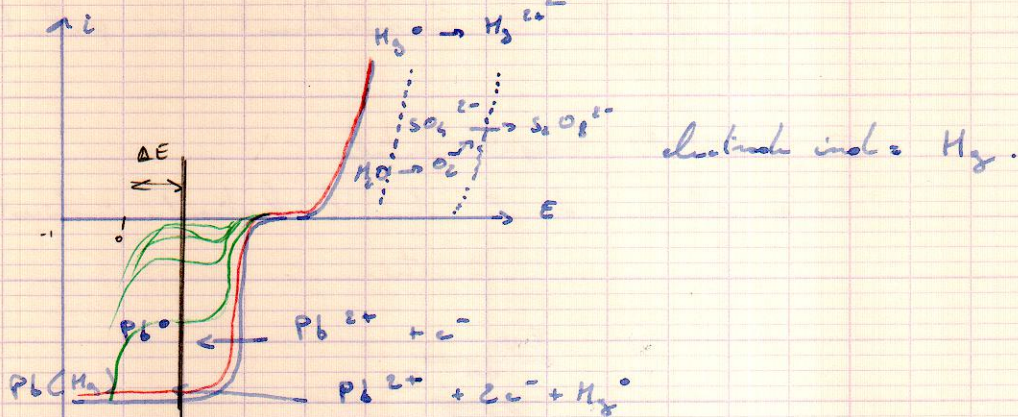 i
Hg° → Hg²⁺
SO₄²⁻ → S₂O₈²⁻
H₂O → O₂
electrode ind = Hg.
ΔE
E
-1
Pb° ← Pb²⁺ + e⁻
Pb(Hg) Pb²⁺ + 2e⁻ + Hg°